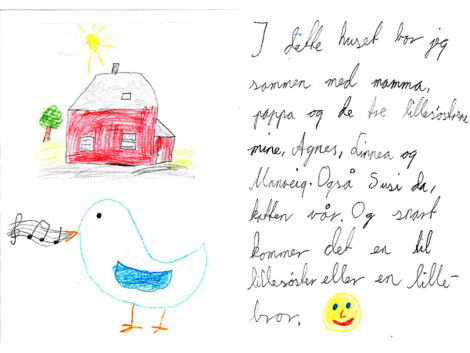 I dette huset bor jeg
sammen med mamma,
pappa og de tre lillesøstrene
mine, Agnes, Linnea og
Manveig. Også Susi da,
katten vår. Og snart
kommer det en til
lillesøster eller en lille-
bror.